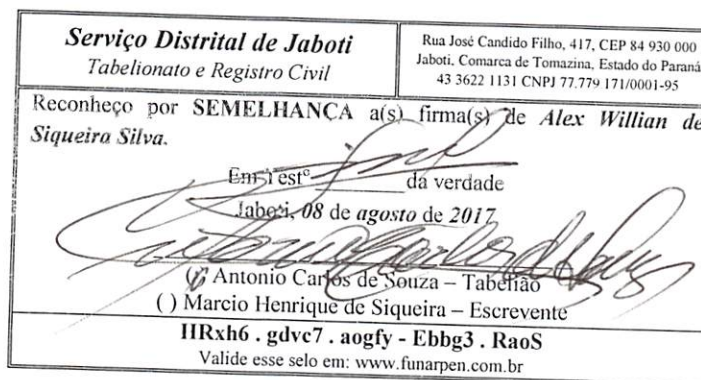 Serviço Distrital de Jaboti
Tabelionato e Registro Civil
Rua José Candido Filho, 417, CEP 84 930 000
Jaboti, Comarca de Tomazina, Estado do Paraná
43 3622 1131 CNPJ 77.779 171/0001-95
Reconheço por SEMELHANÇA a(s) firma(s) de Alex Willian de
Siqueira Silva.
Em Testº ______ da verdade
Jaboti, 08 de agosto de 2017
( ) Antonio Carlos de Souza – Tabelião
( ) Marcio Henrique de Siqueira – Escrevente
IIRxh6 . gdvc7 . aogfy - Ebbg3 . RaoS
Valide esse selo em: www.funarpen.com.br